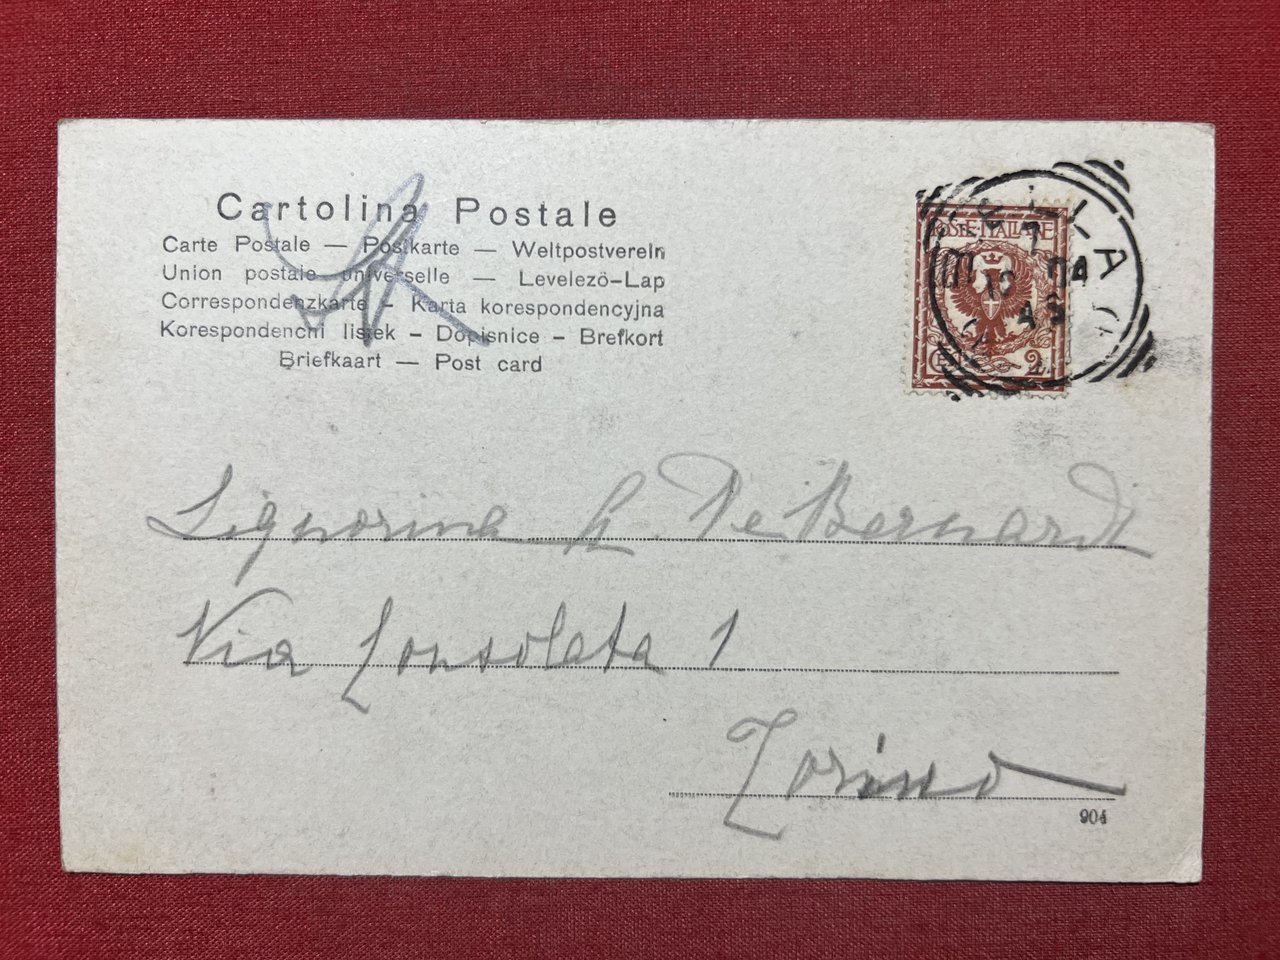 Cartolina Postale
Carte Postale — Postkarte — Weltpostverein
Union postale universelle — Levelezö-Lap
Correspondenzkarte – Karta korespondencyjna
Korespondencni listek – Dopisnice – Brefkort
Briefkaart — Post card
POSTE ITALIANE
2
Signorina L De Bernardi
Via Consolata 1
Torino
904